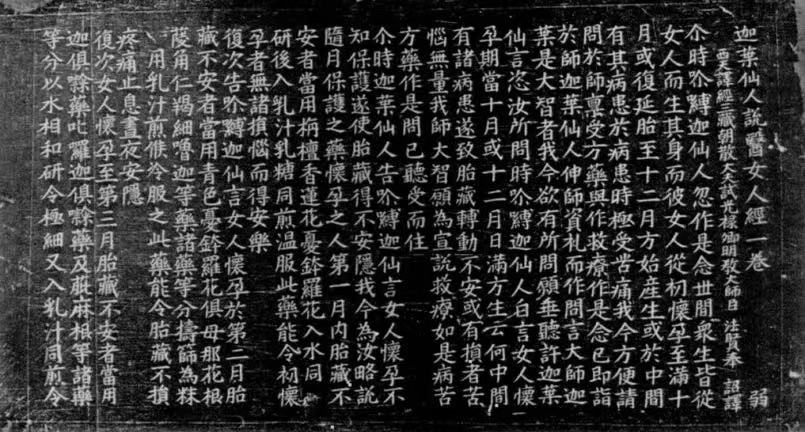 迦葉仙人說毉女人經一卷 弱
西天譯經三藏朝散大夫試光禄卿明教大師臣 法賢奉 詔譯
尒時吤嚩迦仙人忽作是念世間衆生皆從
女人而生其身而彼女人從初懷孕至滿十
月或復延胎至十二月方始産生或於中間
有其病患於病患時極受苦痛我今方便請
問於師稟受方藥與作救療作是念已即詣
於師迦葉仙人伸師資礼而作問言大師迦
葉是大智者我今欲有所問願垂聽許迦葉
仙言恣汝所問時吤嚩迦仙人白言女人懷
孕期當十月或十二月日滿方生云何中間
有諸病患遂致胎藏轉動不安或有損者苦
惱無量我師大智願為宣說救療如是病苦
方藥作是問已聽受而住
尒時迦葉仙人告吤嚩迦仙言女人懷孕不
知保護遂使胎藏得不安隱我今為汝略說
隨月保護之藥懷孕之人第一月內胎藏不
安者當用栴檀香蓮花憂鉢羅花入水同
研後入乳汁乳糖同煎温服此藥能令初懷
孕者無諸損惱而得安樂
復次告吤嚩迦仙言女人懷孕於第二月胎
藏不安者當用青色憂鉢羅花俱母那花根
蔆角仁羯細嚕迦等藥諸藥等分擣篩為秣
用乳汁煎候冷服之此藥能令胎藏不損
疼痛止息晝夜安隱
復次女人懷孕至第三月胎藏不安者當用
迦俱藥叱囉迦俱藥及萞麻根等諸藥
等分以水相和研令極細又入乳汁同煎令